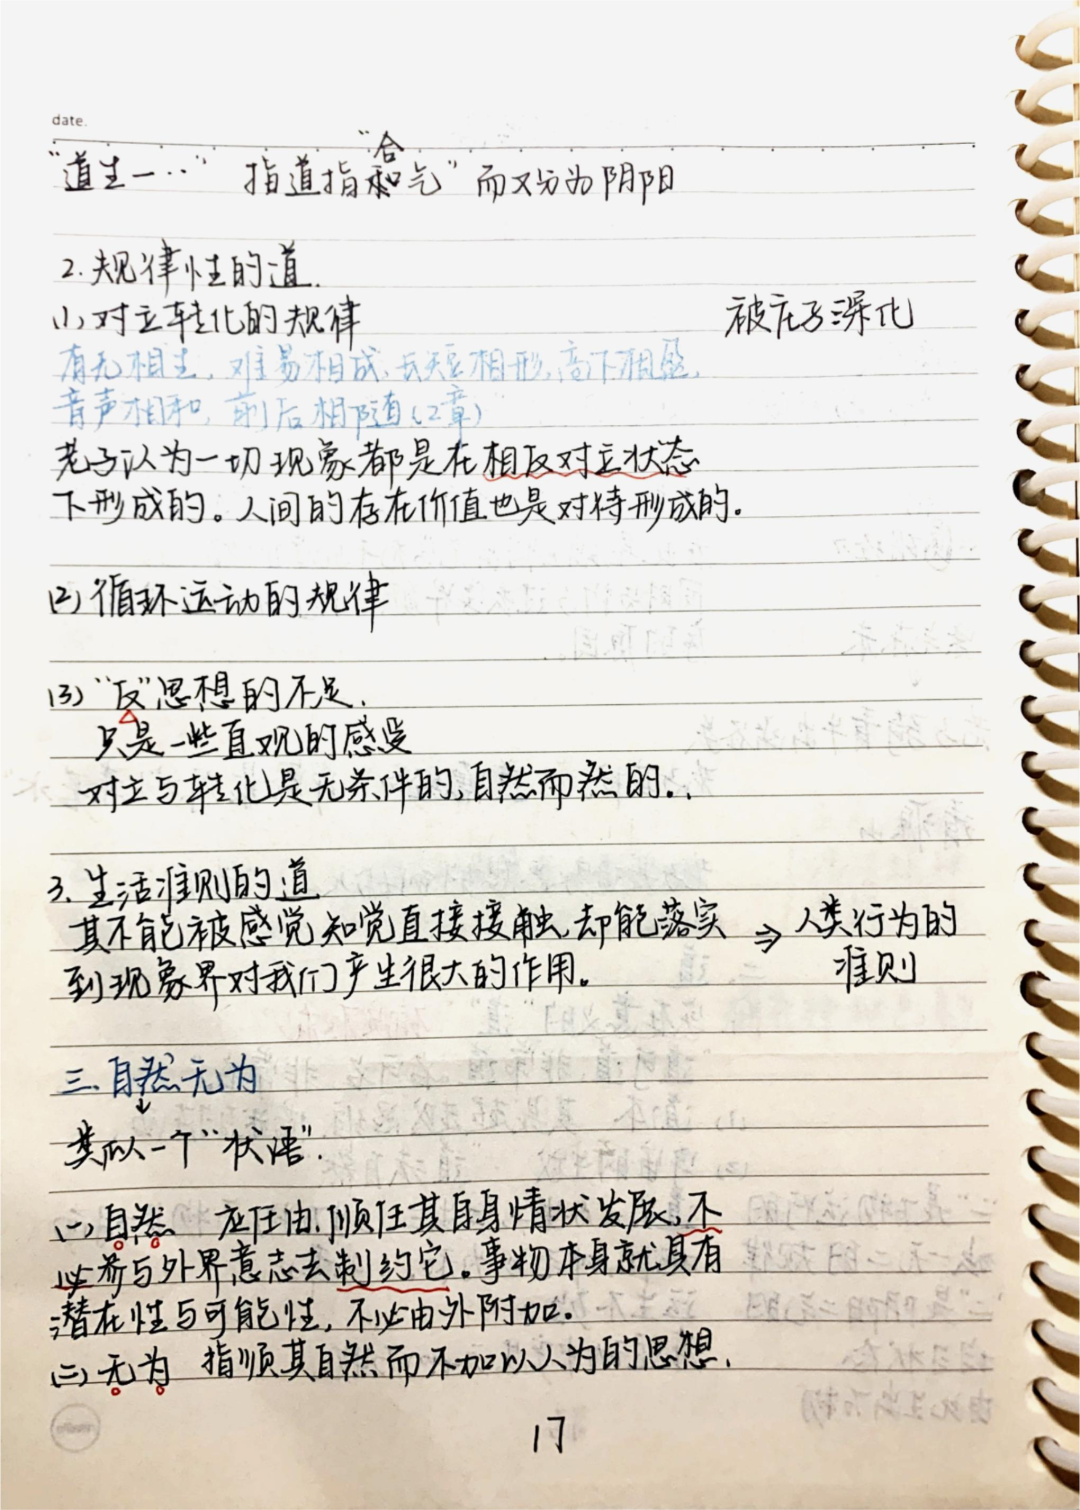 date.
"道生一…" 指道指"合和气"而又分为阴阳
2.规律性的道.
(1)对立转化的规律 被庄子深化
有无相生,难易相成,长短相形,高下相盈,
音声相和,前后相随(2章)
老子认为一切现象都是在相反对立状态
下形成的。人间的存在价值也是对待形成的.
(2)循环运动的规律
(3)"反"思想的不足.
只是一些直观的感受
对立与转化是无条件的,自然而然的..
3.生活准则的道
其不能被感觉知觉直接接触,却能落实 ⇒ 人类行为的
到现象界对我们产生很大的作用。 准则
三.自然无为
↓
类似一个"状语".
(一)自然 应任由,顺任其自身情状发展,不
必参与外界意志去制约它。事物本身就具有
潜在性与可能性,不必由外附加.
(二)无为 指顺其自然而不加以人为的思想.
17